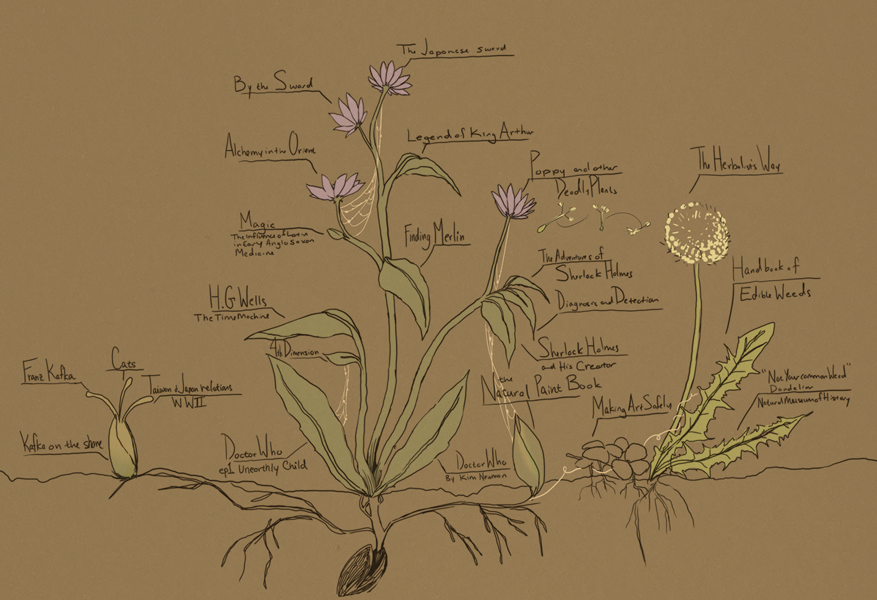 The Japanese sword
By the Sword
Legend of King Arthur
Alchemy in the Orient
Poppy and other
Deadly Plants
The Herbalist's Way
Magic
The Influence of
in Early Anglo Saxon
Medicine
Finding Merlin
The Adventures of
Sherlock Holmes
Handbook of
Edible Weeds
H.G Wells
The Time Machine
Diagnosis and Detection
4th Dimension
Sherlock Holmes
and His Creator
Franz Kafka
Cats
Taiwan & Japan relations
WWII
the
Natural Paint Book
"Not Your common Weed"
Dandelion
Natural Museum of History
Making Art Safely
Kafka on the shore
Doctor Who
ep1 Unearthly Child
Doctor Who
By Kim Newman